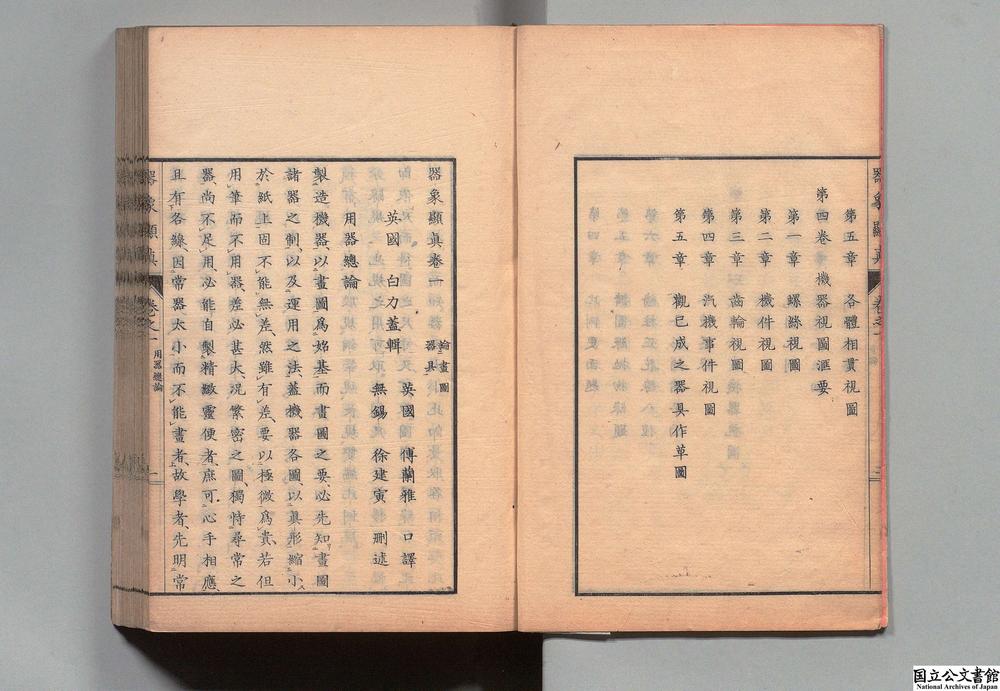 器象顯真 卷之一
第五章 各體相貫視圖
第四卷 機器視圖滙要
第一章 螺絲視圖
第二章 機件視圖
第三章 齒輪視圖
第四章 汽機事件視圖
第五章 觀已成之器具作草圖
器象顯真卷一 論畫圖器具
英國 白力蓋輯 英國 傅蘭雅 口譯
無錫 徐建寅 刪述
用器總論
製造機器以畫圖爲始基而畫圖之要必先知畫圖
諸器之制以及運用之法蓋機器各圖以真形縮小
於紙上固不能無差然雖有差要以極微爲貴若但
用筆而不用器差必甚大況繁密之圖獨恃尋常之
器尚不足用必能自製精緻靈便者庶可心手相應
且有各線因常器太小而不能畫者故學者先明常
器象顯真 卷之一 用器總論 一
国立公文書館
National Archives of Japan